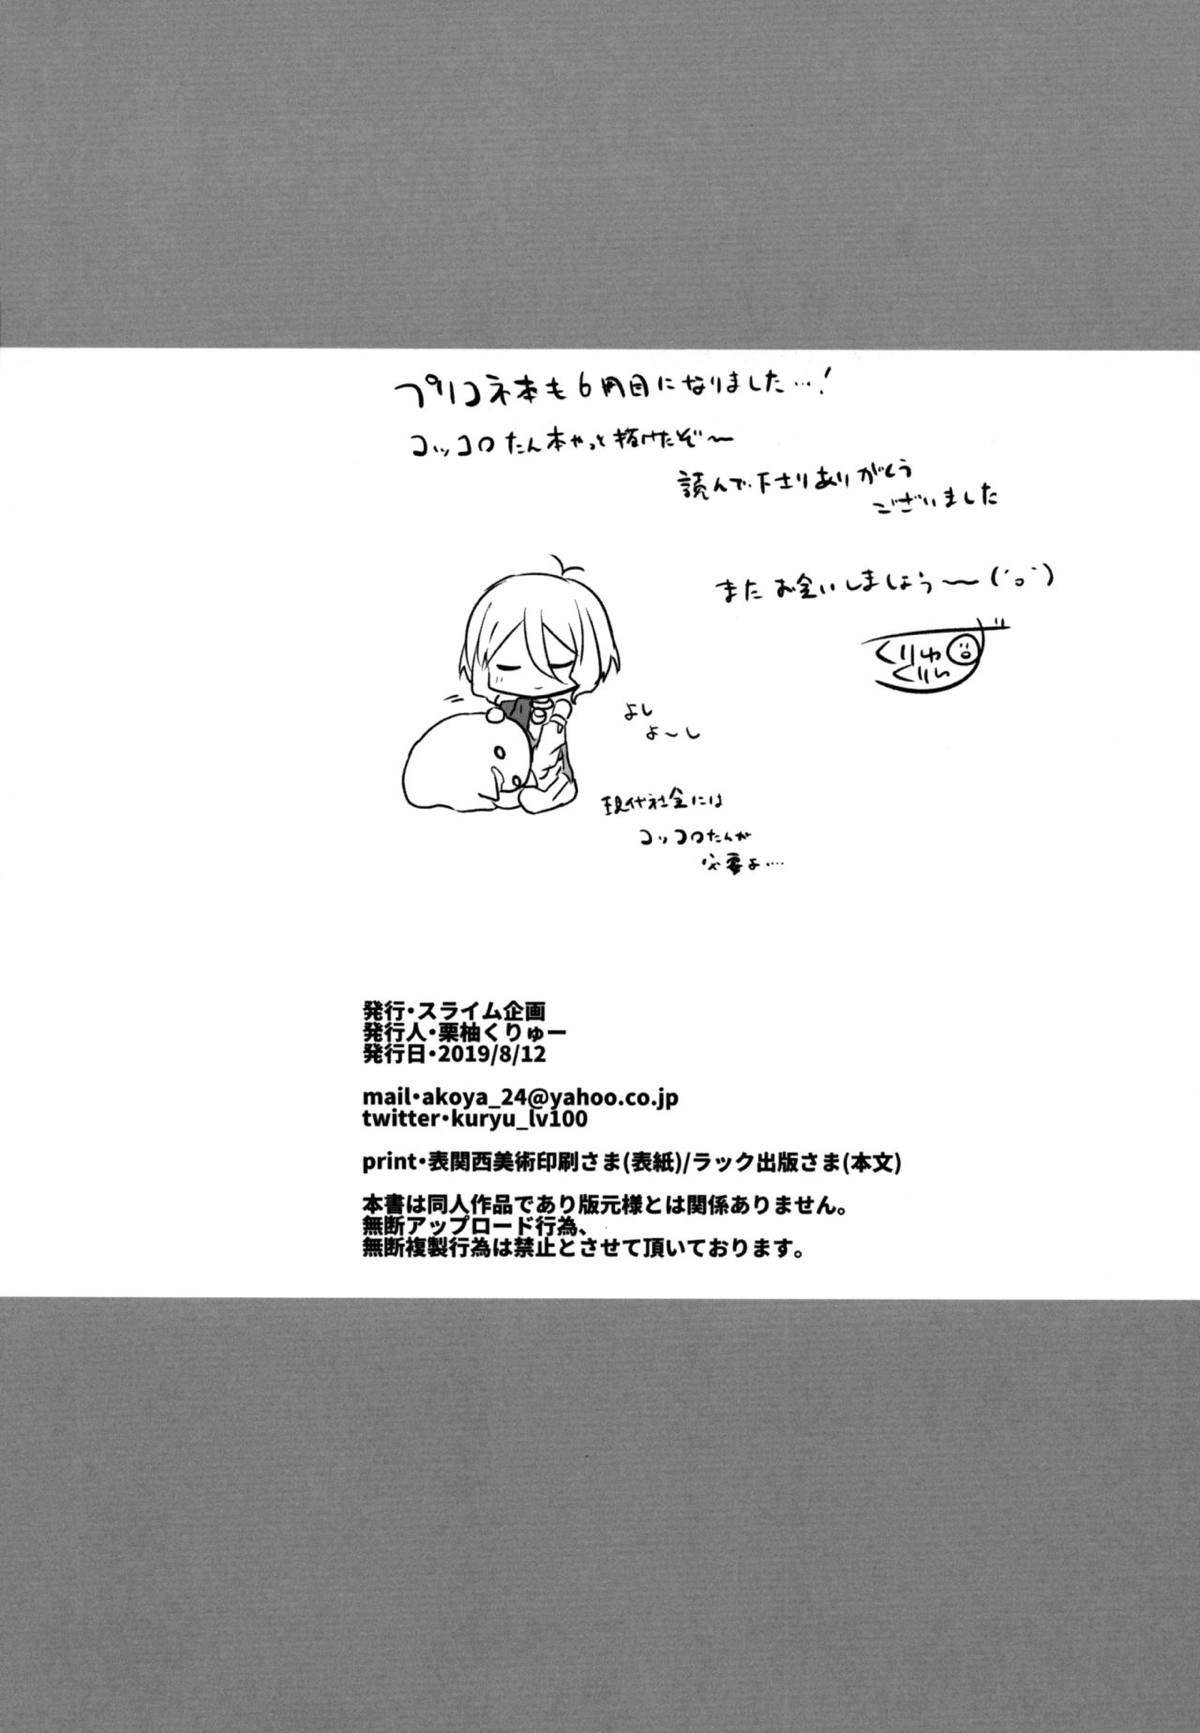 プリコネ本も6冊目になりました…!
コッコロたん本やっと描けたぞ〜
読んで下さりありがとう
ございました
またお会いしましょう〜(´o`)
くりゅー
くりぃ
よし
よ〜し
現代社会には
コッコロたんが
必要よ….
発行・スライム企画
発行人・栗柚くりゅー
発行日・2019/8/12
mail・akoya_24@yahoo.co.jp
twitter・kuryu_lv100
print・表関西美術印刷さま(表紙)/ラック出版さま(本文)
本書は同人作品であり版元様とは関係ありません。
無断アップロード行為、
無断複製行為は禁止とさせて頂いております。